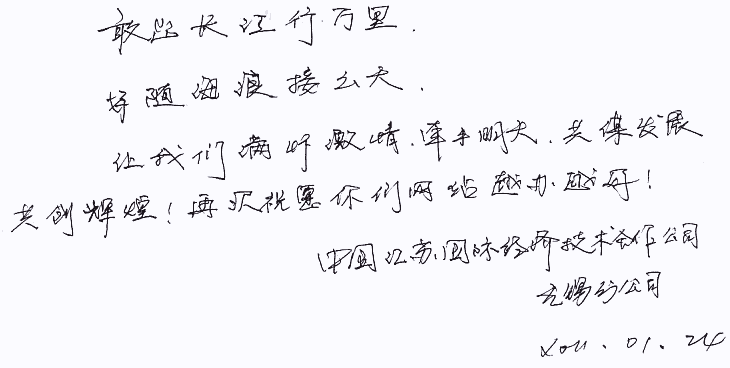 敢出长江行万里.
好随海浪接云天.
让我们满怀激情.牵手明天.共谋发展
共创辉煌!再次祝愿你们网站越办越好!
中国江苏国际经济技术合作公司
无锡分公司
2011.01.24